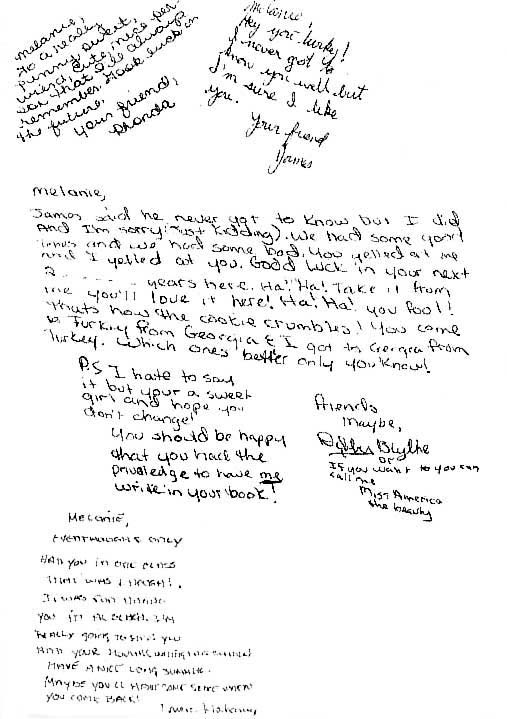 Melanie,
To a really
funny, sweet,
weird, cute, nice per-
son that I'll always
remember. Good luck in
the future.
Your friend,
Rhonda
Melanie,
Hey you turkey!
I never got to
know you well but
I'm sure I like
you.
Your friend
James
Melanie,
James said he never got to know but I did
And I'm sorry (Just kidding). We had some good
times and we had some bad. You yelled at me
and I yelled at you. Good luck in your next
2 - - - - - years here. Ha! Ha! Take it from
me you'll love it here! Ha! Ha! you fool!
Thats how the cookie crumbles! You come
to Turkey from Georgia & I got to Georgia from
Turkey. Which ones better only you know!
P.S I hate to say
it but your a sweet
girl and hope you
don't change!
You should be happy
that you had the
priviledge to have me
write in your book!
Friends
Maybe,
Blythe
or
If you want to you can
call me
Miss America
the beauty
Melanie,
Eventhough I only
had you in one class
that was enough!.
It was fun
you
really going to miss you
and your
Have a nice long summer.
Maybe you'll have some sense when
you come back!